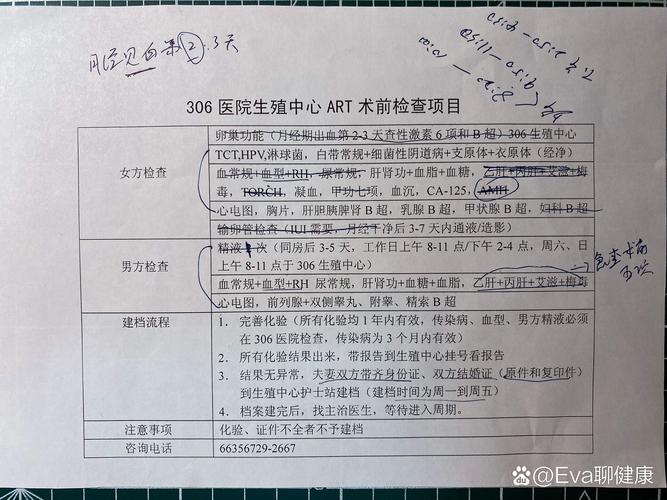 月经见血第2.3天
306 医院生殖中心 ART 术前检查项目
女方检查
卵巢功能（月经期出血第 2-3 天查性激素 6 项和 B 超）306 生殖中心
TCT,HPV,淋球菌，白带常规+细菌性阴道病+支原体+衣原体（经净）
血常规+血型+RH，尿常规，肝肾功+血脂+血糖，乙肝+丙肝+艾滋+梅
毒，TORCH，凝血，甲功七项，血沉，CA-125，AMH
心电图，胸片，肝胆胰脾肾 B 超，乳腺 B 超，甲状腺 B 超，妇科 B 超
输卵管检查（IUI 需要，月经干净后 3-7 天内通液/造影）
男方检查
精液 1 次（同房后 3-5 天，工作日上午 8-11 点/下午 2-4 点，周六、日
上午 8-11 点于 306 生殖中心）
血常规+血型+RH 尿常规，肝肾功+血糖+血脂，乙肝+丙肝+艾滋+梅毒
心电图，前列腺+双侧睾丸、附睾、精索 B 超
建档流程
1. 完善化验（所有化验均 1 年内有效，传染病、血型、男方精液必须
在 306 医院检查，传染病为 3 个月内有效）
2. 所有化验结果出来，带报告到生殖中心挂号看报告
3. 结果无异常，夫妻双方带齐身份证、双方结婚证（原件和复印件）
到生殖中心护士站建档（建档时间为周一到周五）
4. 档案建完后，找主治医生，等待进入周期。
注意事项
化验、证件不全者不予建档
咨询电话
66356729-2667
Eva聊健康